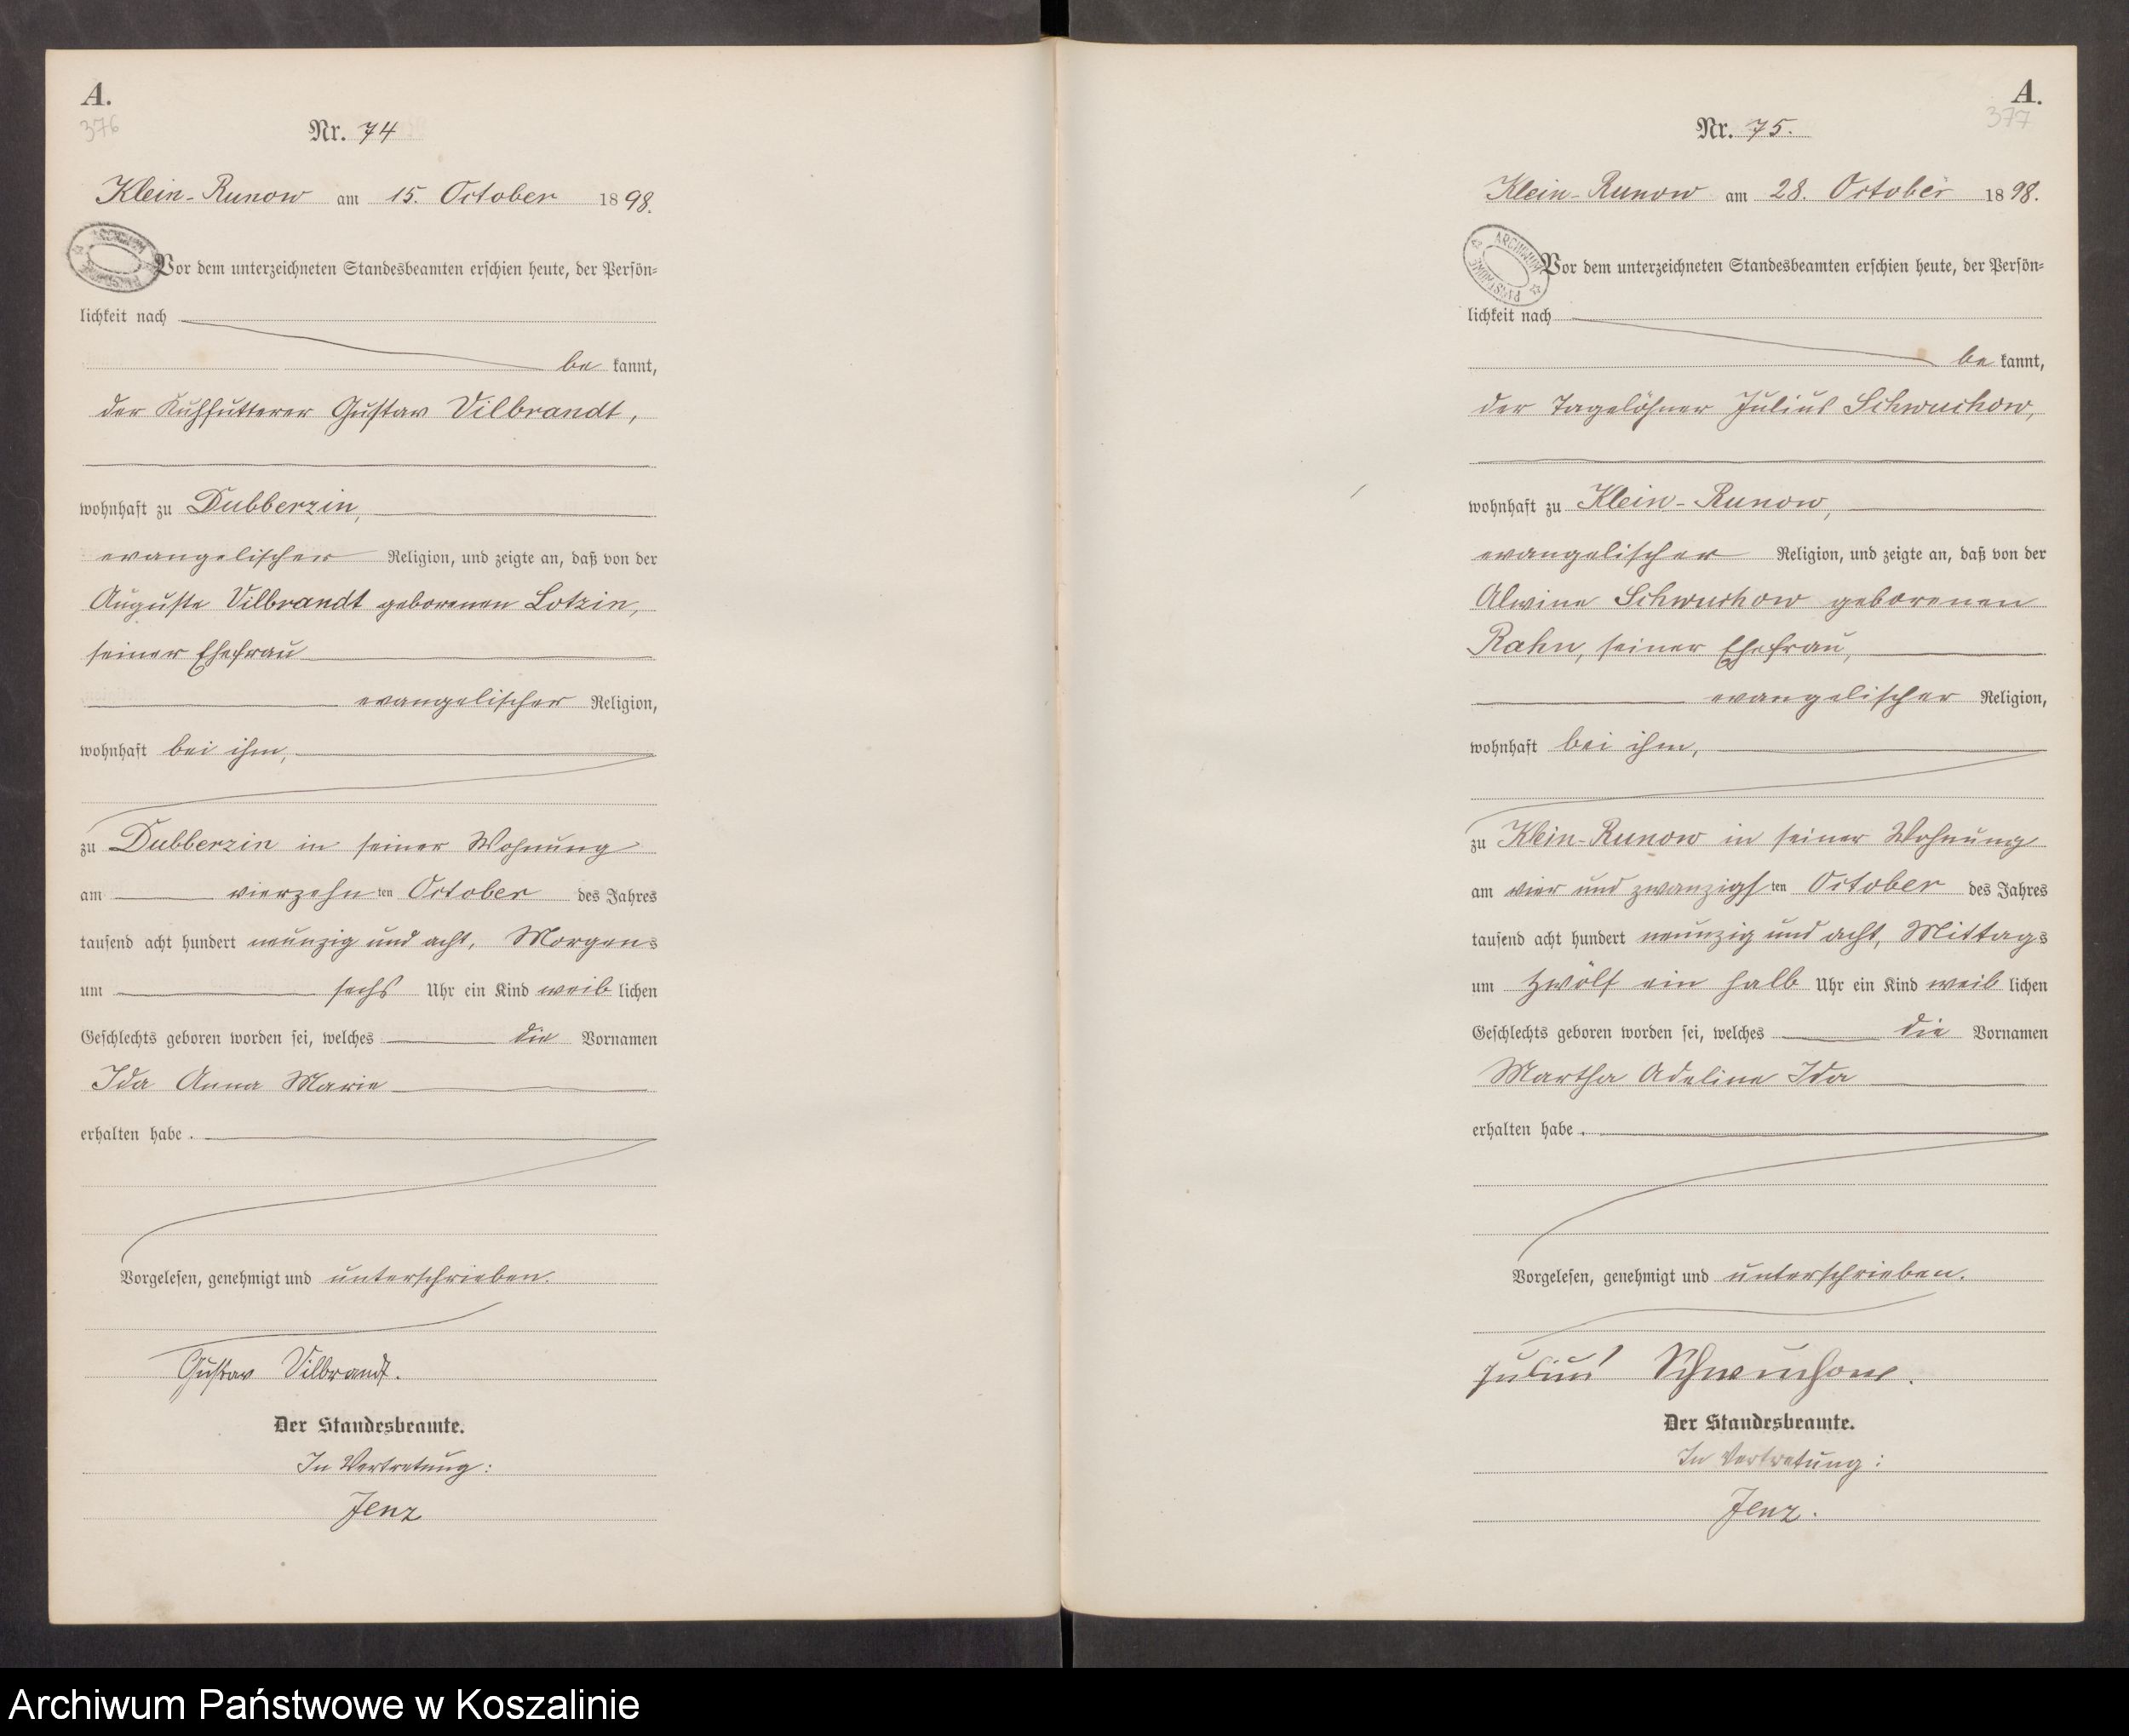 A.
376
Nr. 74
Klein-Runow am 15. October 1898.
Vor dem unterzeichneten Standesbeamten erschien heute, der Persön=
lichkeit nach
be kannt,
der Kuhfutterer Gustav Vilbrandt,
wohnhaft zu Dubberzin,
evangelischer Religion, und zeigte an, daß von der
Auguste Vilbrandt geborenen Lotzin,
seiner Ehefrau
evangelischer Religion,
wohnhaft bei ihm,
zu Dubberzin in seiner Wohnung
am vierzehn ten October des Jahres
tausend acht hundert neunzig und acht, Morgens
um sechs Uhr ein Kind weib lichen
Geschlechts geboren worden sei, welches die Vornamen
Ida Anna Marie
erhalten habe.
Vorgelesen, genehmigt und unterschrieben.
Gustav Vilbrandt.
Der Standesbeamte.
In Vertretung:
Jenz
A.
377
Nr. 75.
Klein-Runow am 28. October 1898.
ARCHIWUM PAŃSTWOWE
Vor dem unterzeichneten Standesbeamten erschien heute, der Persön=
lichkeit nach
be kannt,
der Tagelöhner Julius Schwuchow,
wohnhaft zu Klein-Runow,
evangelischer Religion, und zeigte an, daß von der
Alwine Schwuchow geborenen
Rahn, seiner Ehefrau,
evangelischer Religion,
wohnhaft bei ihm,
zu Klein-Runow in seiner Wohnung
am vier und zwanzigs ten October des Jahres
tausend acht hundert neunzig und acht, Mittags
um zwölf ein halb Uhr ein Kind weib lichen
Geschlechts geboren worden sei, welches die Vornamen
Martha Adeline Ida
erhalten habe.
Vorgelesen, genehmigt und unterschrieben.
Julius Schwuchow.
Der Standesbeamte.
In Vertretung:
Jenz.
Archiwum Państwowe w Koszalinie